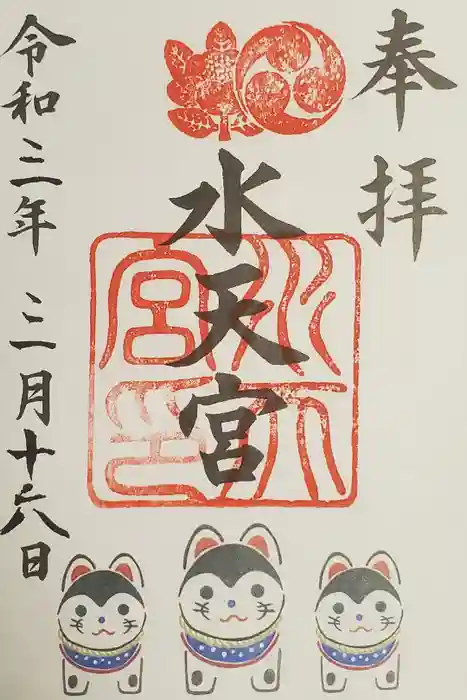 奉拝
水天宮
令和三年 三月十六日
水天宮印